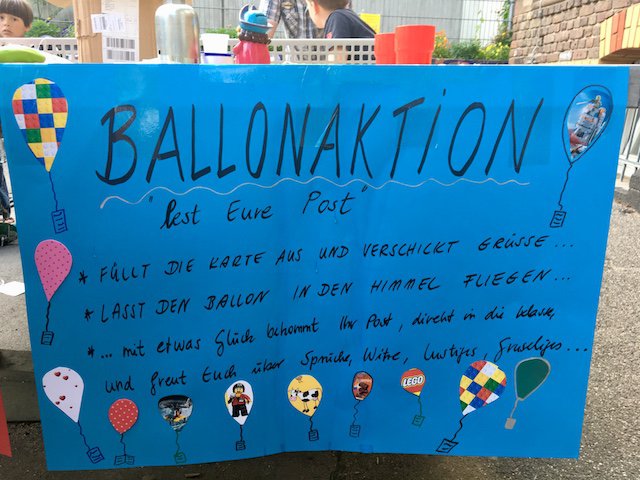 BALLONAKTION
"Lest Eure Post"
* FÜLLT DIE KARTE AUS UND VERSCHICKT GRÜSSE...
* LASST DEN BALLON IN DEN HIMMEL FLIEGEN...
*... mit etwas Glück bekommt Ihr Post, direkt in die Klasse,
und freut Euch über Sprüche, Witze, lustiges, Gruseliges...
LEGO